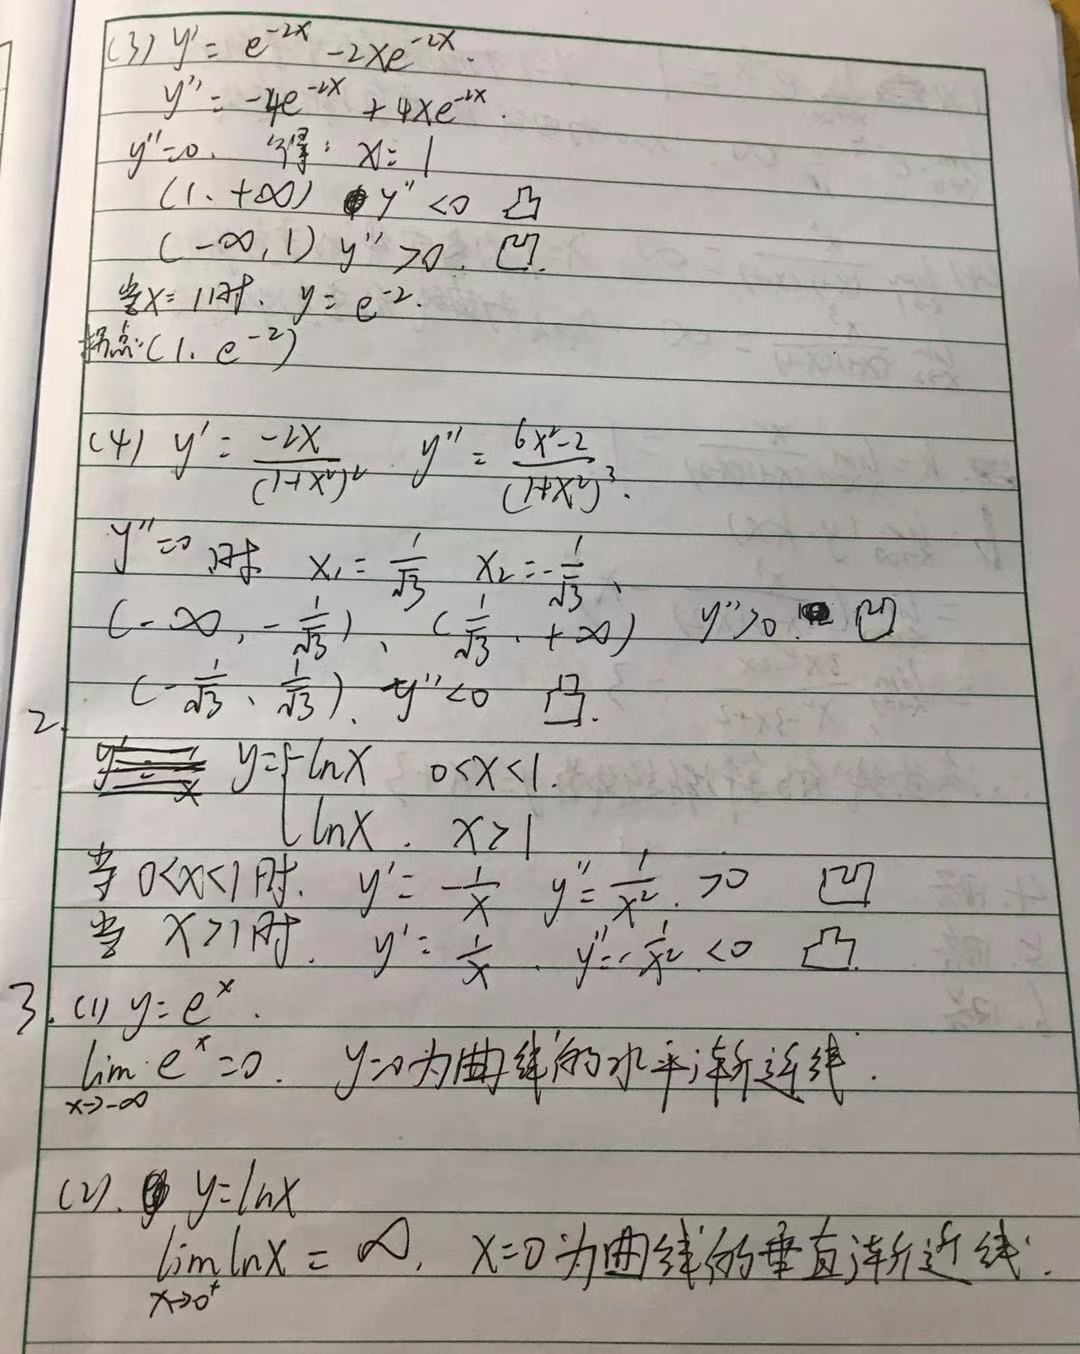 (3) y' = e^{-2x} - 2xe^{-2x}.
y'' = -4e^{-2x} + 4xe^{-2x}.
y''=0. 得: x=1
(1, +∞) y''<0 凸
(-∞, 1) y''>0. 凹.
当x=1时. y=e^{-2}.
拐点:(1, e^{-2})
(4) y' = \frac{-2x}{(1+x²)²} . y'' = \frac{6x²-2}{(1+x²)³}.
y''=0时 x₁ = \frac{1}{√3} x₂ = -\frac{1}{√3}、
(-∞, -\frac{1}{√3})、(\frac{1}{√3}, +∞) y''>0. 凹
(-\frac{1}{√3}、\frac{1}{√3}). y''<0 凸.
2.
y={-lnx 0<x<1.
lnx. x>1
当 0<x<1时. y'=-\frac{1}{x} y''=\frac{1}{x²}. >0 凹
当 x>1时. y'=\frac{1}{x}. y''=-\frac{1}{x²} <0 凸.
3. (1) y=e^x.
lim_{x→-∞} e^x=0. y=0为曲线的水平渐近线.
(2). y=lnx
lim_{x→0⁺} lnx = ∞. x=0为曲线的垂直渐近线.